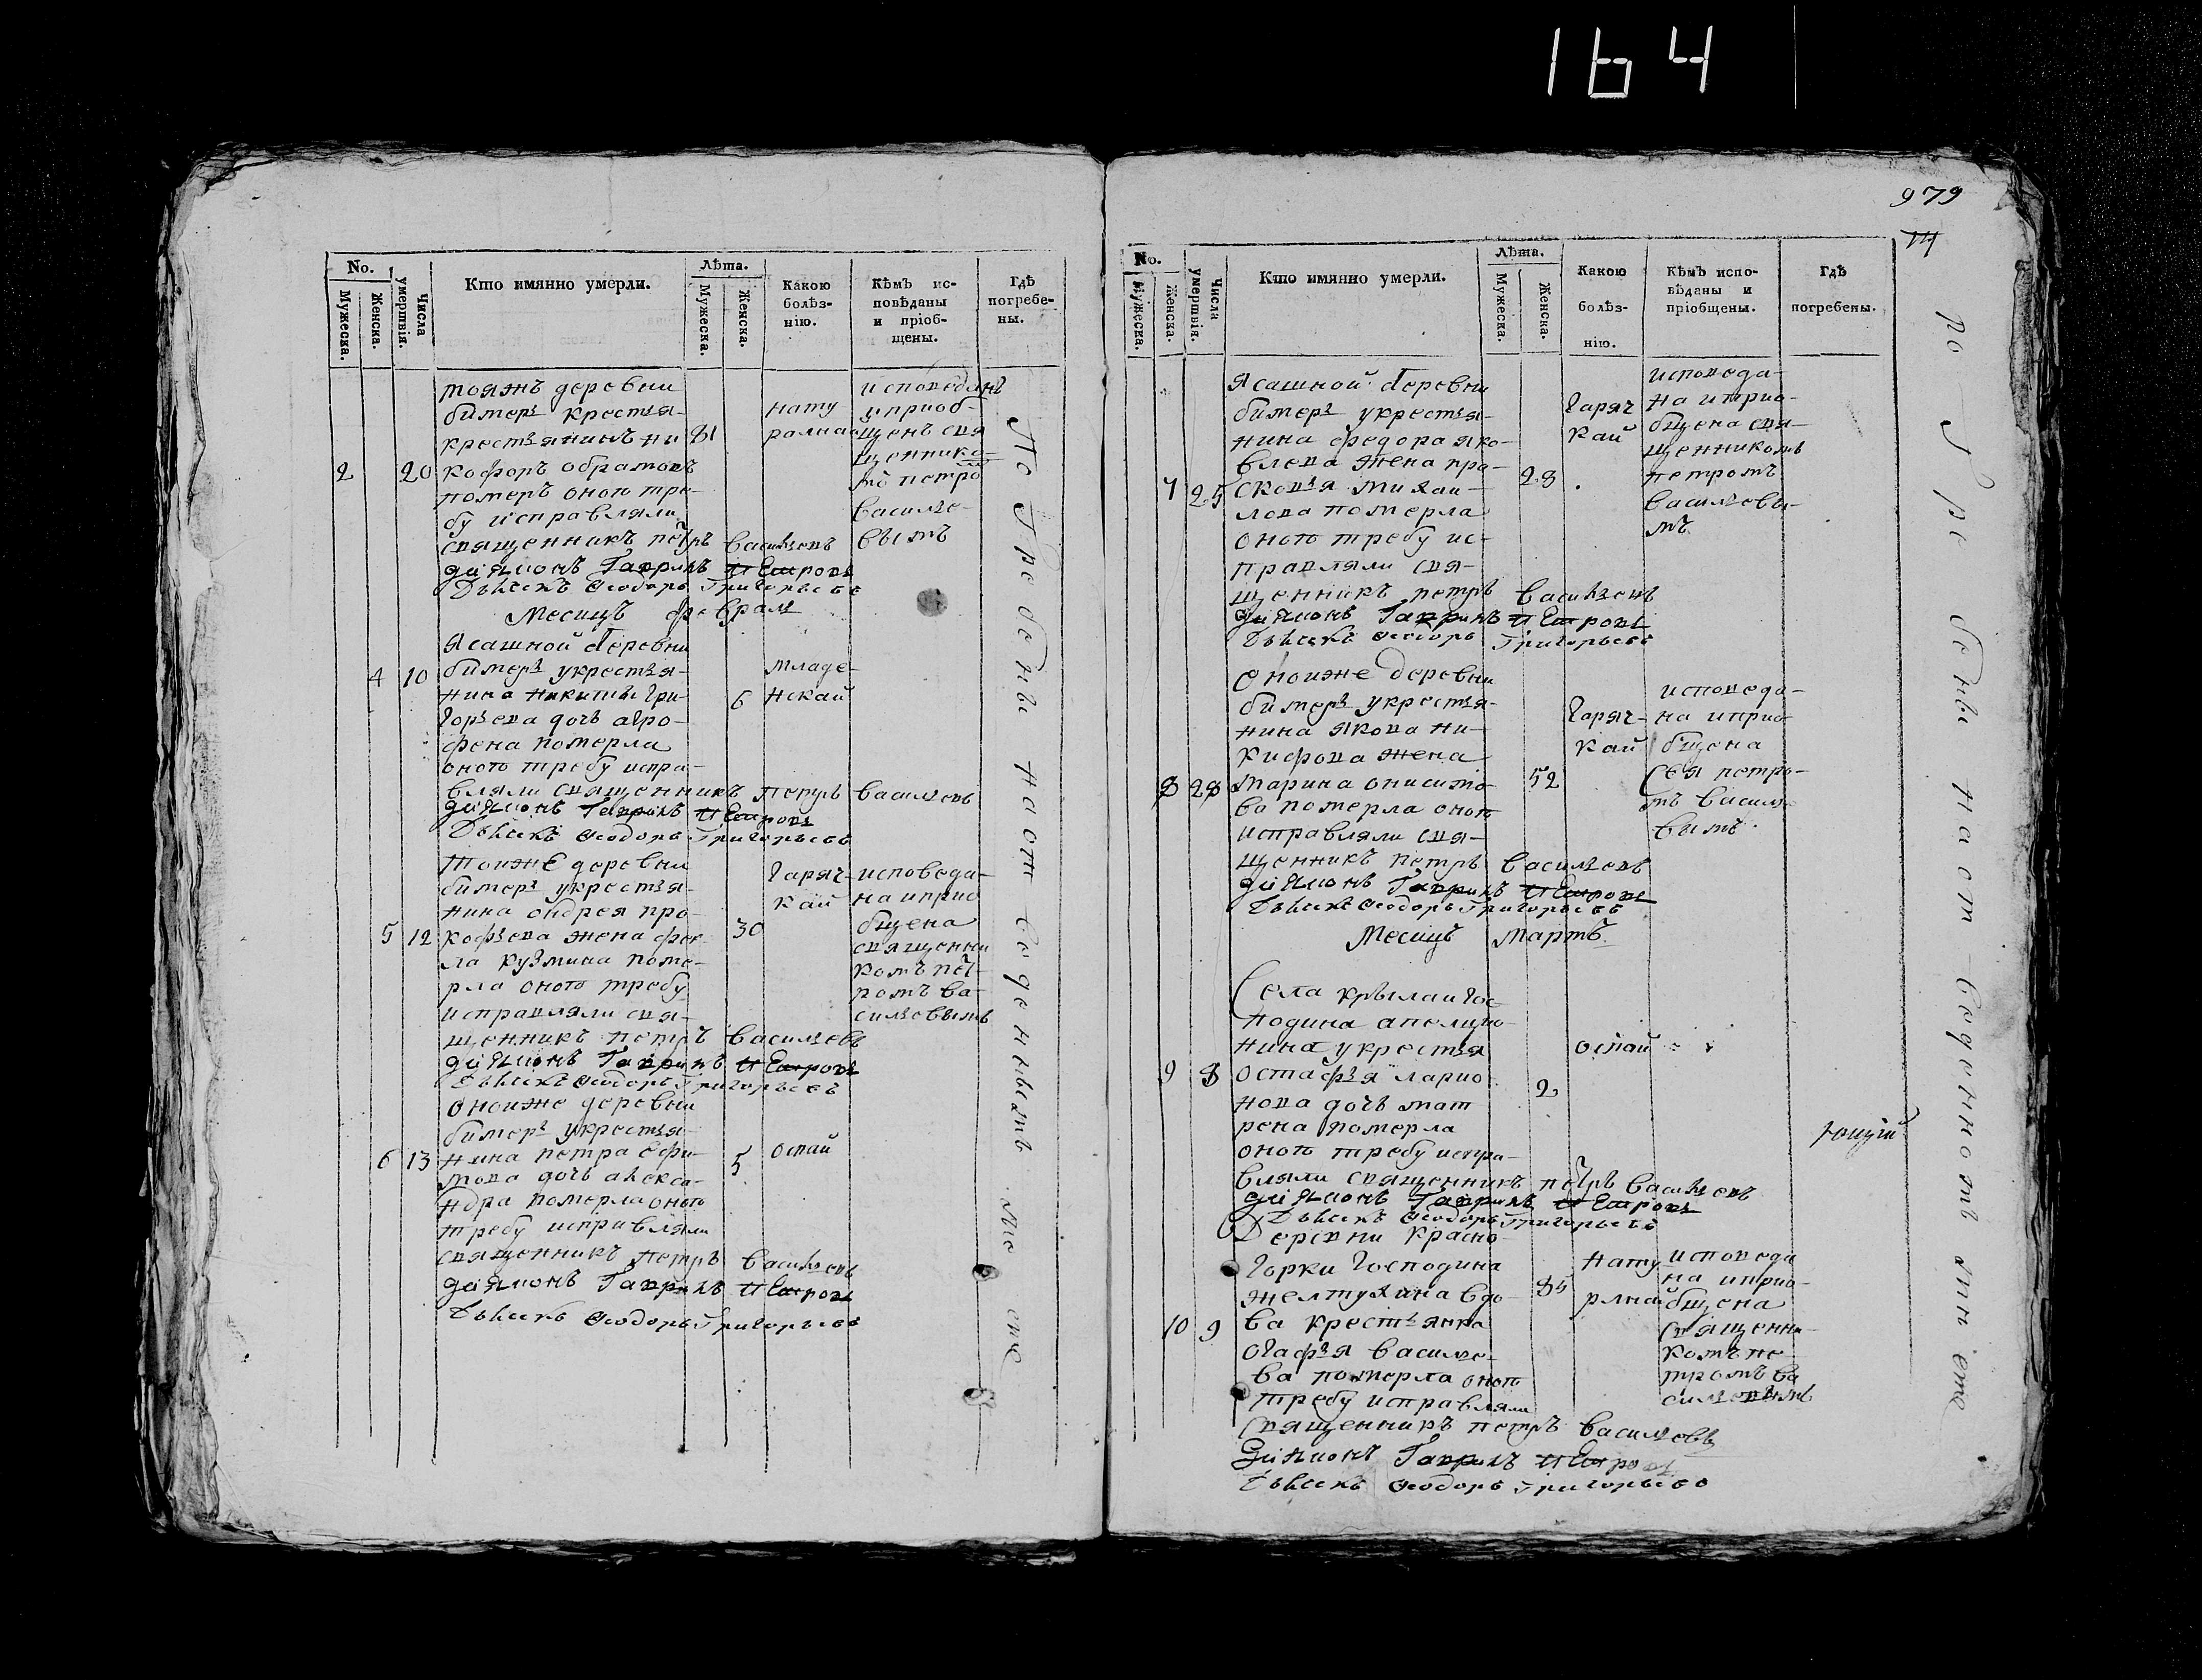 164
No.
Мужеска.
Женска.
Числа умертвія.
Кто имянно умерли.
Лѣта.
Мужеска.
Женска.
Какою
болѣз-
нію.
Кѣмъ ис-
повѣданы
и пріоб-
щены.
Гдѣ
погребе-
ны.
тояжъ деревни
бимерь крестья-
крестьянинъ ни 81
2 20 кофоръ обрамовъ
померъ оною тре-
бу исправляли
священникъ петръ васильевъ
діяконъ Гаврилъ Петровъ
Дьячекъ Ѳеодоръ Григорьевъ
нату
ралнаю
исповеданъ
и приоб-
щенъ свя
щеннико-
мъ петро
василье-
вымъ
Месяцъ февраль
Ясашной деревни
4 10 бимерь у крестья-
нина никиты гри- 6
горьева дочь агро-
фена померла
оною требу испра-
вляли священникъ петръ васильевъ
діяконъ Гаврилъ Петровъ
Дьячекъ Ѳеодоръ Григорьевъ
младе-
нскай
Тоиже деревни
бимерь у крестья-
нина ондрея про-
5 12 кофьева жена фек- 30
ла кузмина поме-
рла оною требу
исправляли свя-
щенникъ петръ васильевъ
діяконъ Гаврилъ Петровъ
Дьячекъ Ѳеодоръ Григорьевъ
гаряч-
кай
исповеда-
на иприо
бщена
священни
комъ пет-
ромъ ва-
сильевымъ
оноиже деревни
бимерь у крестья-
6 13 нина петра ефи- 5
мова дочь алекса-
ндра померла оною
требу исправляли
священникъ петръ васильевъ
діяконъ Гаврилъ Петровъ
Дьячекъ Ѳеодоръ Григорьевъ
оспай
Погребены на от
веденномъ ме сте
979
No.
Мужеска.
Женска.
Числа умертвія.
Кто имянно умерли.
Лѣта.
Мужеска.
Женска.
Какою
болѣз-
нію.
Кѣмъ испо-
вѣданы и
пріобщены.
Гдѣ
погребены.
Ясашной деревни
бимерь у крестья-
нина федора яко-
влева жена пра-
7 25 сковья михаи- 28
лова померла
оною требу ис-
правляли свя-
щенникъ петръ васильевъ
діяконъ Гаврилъ Петровъ
Дьячекъ Ѳеодоръ Григорьевъ
гаряч
кай
исповеда-
на и приo-
бщена свя-
щенникомъ
петромъ
васильевы-
мъ
оноиже деревни
бимерь у крестья-
нина якова ни-
кифова жена
8 28 марина онисимо- 52
ва померла оною
исправляли свя-
щенникъ петръ васильевъ
діяконъ Гаврилъ Петровъ
Дьячекъ Ѳеодоръ Григорьевъ
гаряч-
кай
исповеда-
на и приo-
бщена
свя петро-
мъ василь
вымъ
Месяцъ мартъ
Села крылаи гос
подина
нина у крестья
9 8 остафья ларио 2
нова дочь мат
рена померла
оною требу испра-
вляли священникъ петръ васильевъ
діяконъ Гаврилъ Петровъ
Дьячекъ Ѳеодоръ Григорьевъ
оспай
Деревни красно-
горки Господина
желтухина вдо- 85
10 9 ва крестьянка
огафья василье-
ва померла оною
требу исправляли
священникъ петръ васильевъ
Діяконъ Гаврилъ Петровъ
Дьячекъ Ѳеодоръ Григорьевъ
нату
рлнай
исповеда
на и приo-
бщена
священни-
комъ пе-
тромъ ва
сильевымъ
погребены на от веденномъ месте